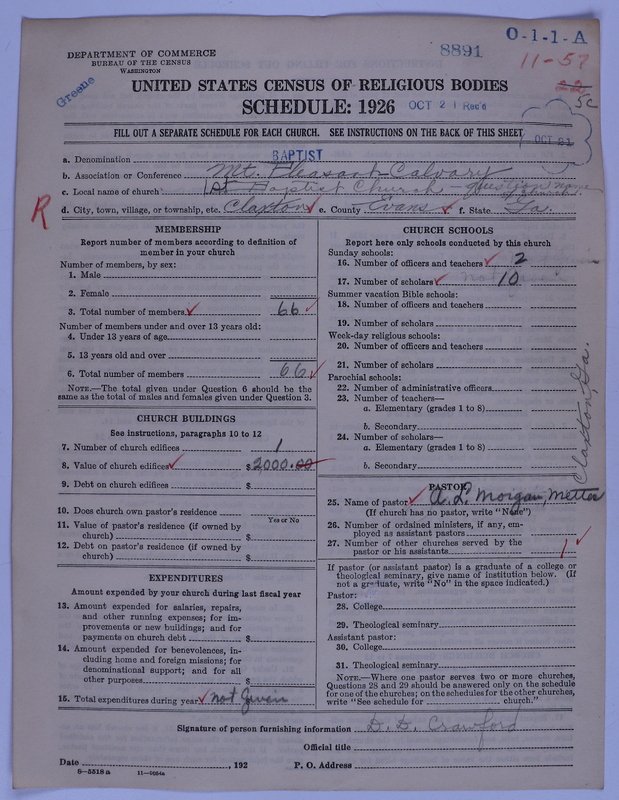 O-1-1-A
8891
11-57
DEPARTMENT OF COMMERCE
BUREAU OF THE CENSUS
WASHINGTON
Greene
UNITED STATES CENSUS OF RELIGIOUS BODIES
22
5c
SCHEDULE: 1926
OCT 21 Rec'd
FILL OUT A SEPARATE SCHEDULE FOR EACH CHURCH. SEE INSTRUCTIONS ON THE BACK OF THIS SHEET
OCT 21
a. Denomination BAPTIST
b. Association or Conference Mt. Pleasant-Calvary
c. Local name of church Baptist Church - question name
R
d. City, town, village, or township, etc. Claxton e. County Evans f. State Ga.
MEMBERSHIP
Report number of members according to definition of
member in your church
Number of members, by sex:
1. Male
2. Female
3. Total number of members 66
Number of members under and over 13 years old:
4. Under 13 years of age
5. 13 years old and over
6. Total number of members 66
NOTE.—The total given under Question 6 should be the
same as the total of males and females given under Question 3.
CHURCH BUILDINGS
See instructions, paragraphs 10 to 12
7. Number of church edifices 1
8. Value of church edifices $2000.00
9. Debt on church edifices $
10. Does church own pastor's residence
Yes or No
11. Value of pastor's residence (if owned by
church) $
12. Debt on pastor's residence (if owned by
church) $
EXPENDITURES
Amount expended by your church during last fiscal year
13. Amount expended for salaries, repairs,
and other running expenses; for im-
provements or new buildings; and for
payments on church debt $
14. Amount expended for benevolences, in-
cluding home and foreign missions; for
denominational support; and for all
other purposes $
15. Total expenditures during year not given
CHURCH SCHOOLS
Report here only schools conducted by this church
Sunday schools:
16. Number of officers and teachers 2
17. Number of scholars 10
Summer vacation Bible schools:
18. Number of officers and teachers
19. Number of scholars
Week-day religious schools:
20. Number of officers and teachers
21. Number of scholars
Parochial schools:
22. Number of administrative officers
23. Number of teachers—
a. Elementary (grades 1 to 8)
b. Secondary
24. Number of scholars—
a. Elementary (grades 1 to 8)
b. Secondary
Claxton, Ga.
PASTOR
25. Name of pastor A. L. Morgan, Metter
(If church has no pastor, write "None")
26. Number of ordained ministers, if any, em-
ployed as assistant pastors
27. Number of other churches served by the
pastor or his assistants 1
If pastor (or assistant pastor) is a graduate of a college or
theological seminary, give name of institution below. (If
not a graduate, write "No" in the space indicated.)
Pastor:
28. College
29. Theological seminary
Assistant pastor:
30. College
31. Theological seminary
NOTE.—Where one pastor serves two or more churches,
Questions 28 and 29 should be answered only on the schedule
for one of the churches; on the schedules for the other churches,
write "See schedule for church."
Signature of person furnishing information D. D. Crawford
Official title
Date , 192 P. O. Address
8-5518a 11-9064a